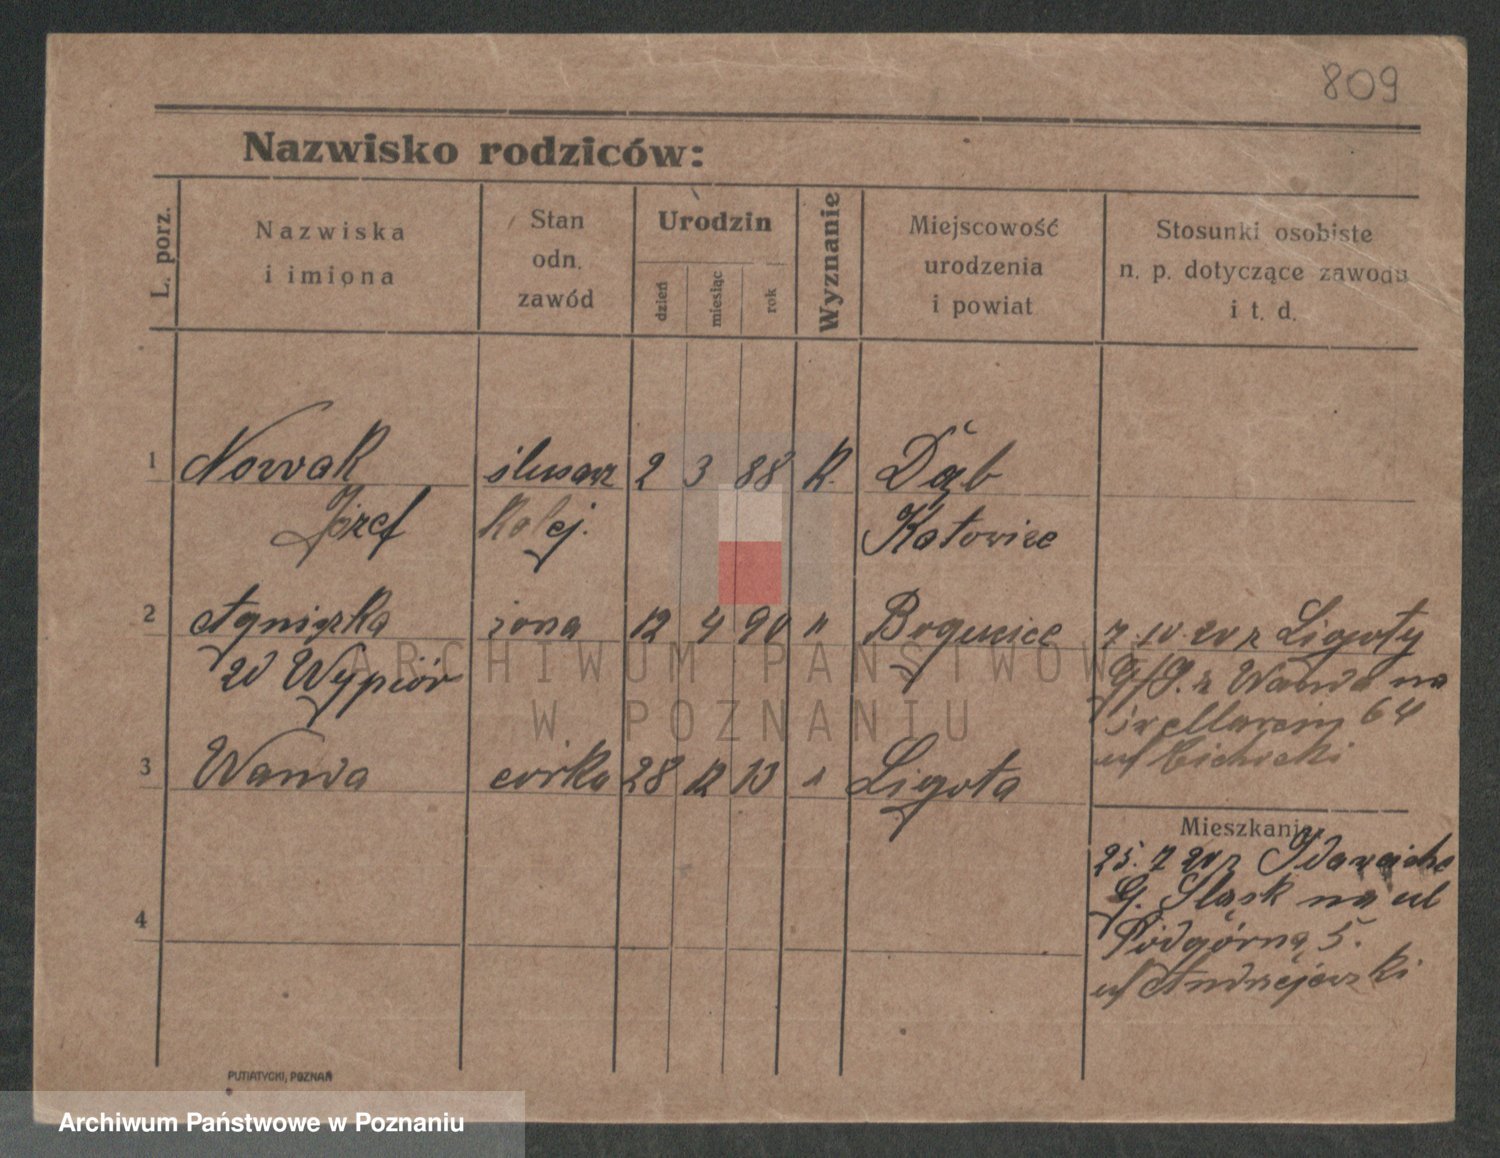 809
Nazwisko rodziców:
L. porz.
Nazwiska
i imiona
Stan
odn.
zawód
Urodzin
dzień
miesiąc
rok
Wyznanie
Miejscowość
urodzenia
i powiat
Stosunki osobiste
n. p. dotyczące zawodu
i t. d.
1 Nowak ślusarz 2 3 88 R. Dąb
Józef kolej. Katowice
2 Agnieszka żona 12 4 90 " Bogucice
z Ligoty
G/Ś. z Wandą na
64
u/ Cichocki
Wypiór
3 Wanda córka 28 12 13 " Ligota
Mieszkanie
25. 7 20 z
G. Śląsk na ul
Podgórną 5.
u/ Andrzejewski
4
PUTIATYCKI, POZNAŃ
ARCHIWUM PAŃSTWOWE
W POZNANIU
Archiwum Państwowe w Poznaniu